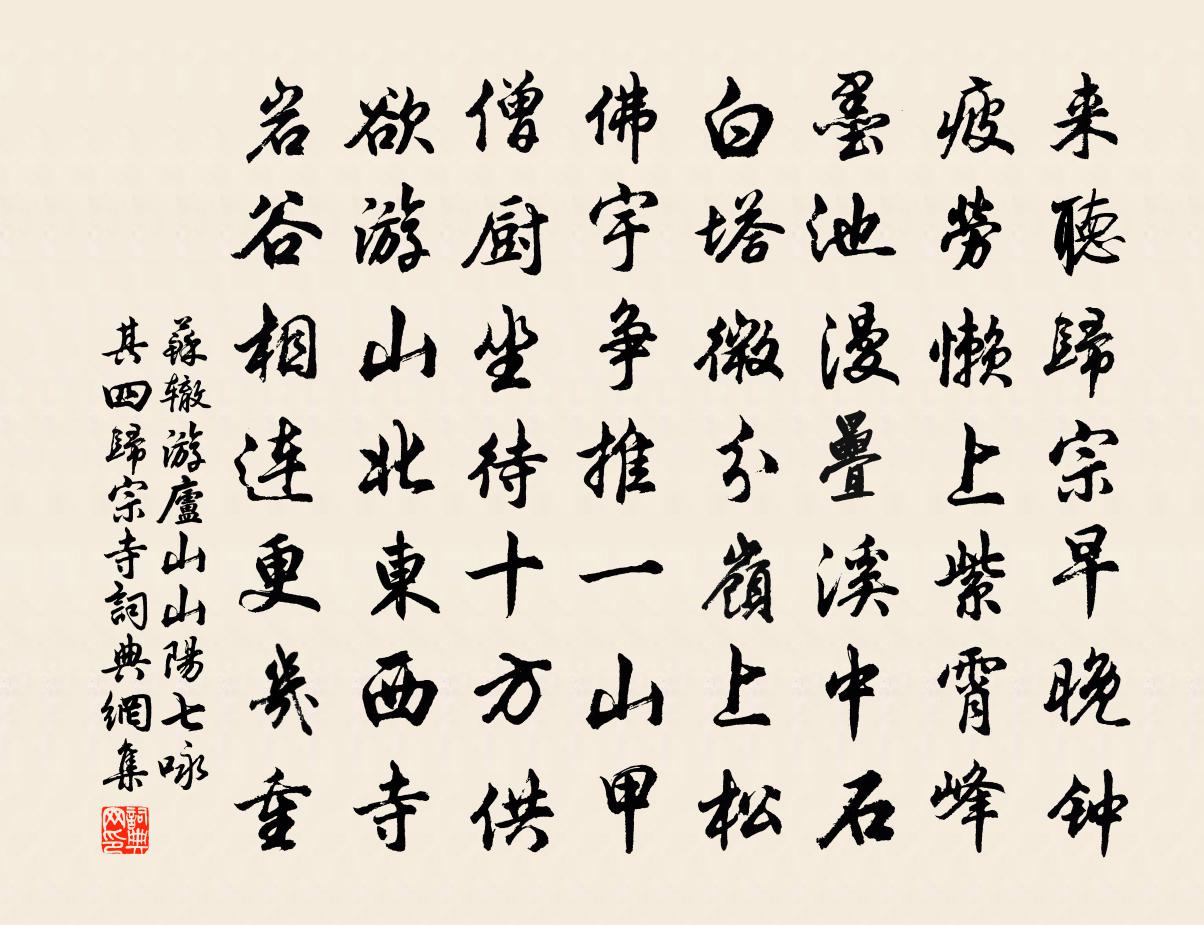 来聽歸宗早晚钟
疲勞懒上紫霄峰
墨池漫疊溪中石
白塔微分嶺上松
佛宇争推一山甲
僧厨坐待十方供
欲游山北東西寺
岩谷相连更幾重
蘇辙游廬山山陽七咏
其四歸宗寺詞典網集
詞典网印